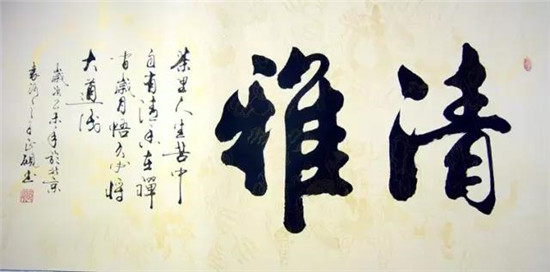 清雅
茶里人生苦中
自有清香在禪
歲月悟必將
大道成
歲次乙未年於北京